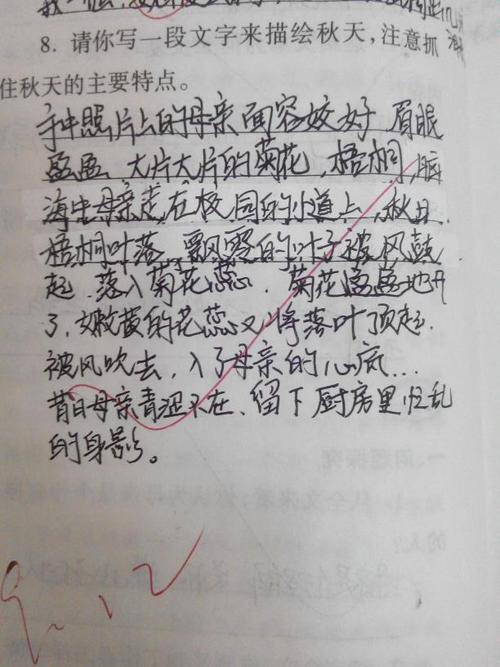 8. 请你写一段文字来描绘秋天，注意抓
住秋天的主要特点。
手中照片上的母亲面容姣好，眉眼
盈盈。大片大片的菊花，梧桐，脑
海中母亲走在校园的小道上，秋日，
梧桐叶落，飘零的叶子被风鼓
起，落入菊花蕊，菊花盈盈地开
了，嫩黄的花蕊又将落叶顶起，
被风吹去，入了母亲的心底…
昔日母亲青涩不在，留下厨房里忙乱
的身影。
一、问题探究
9.12